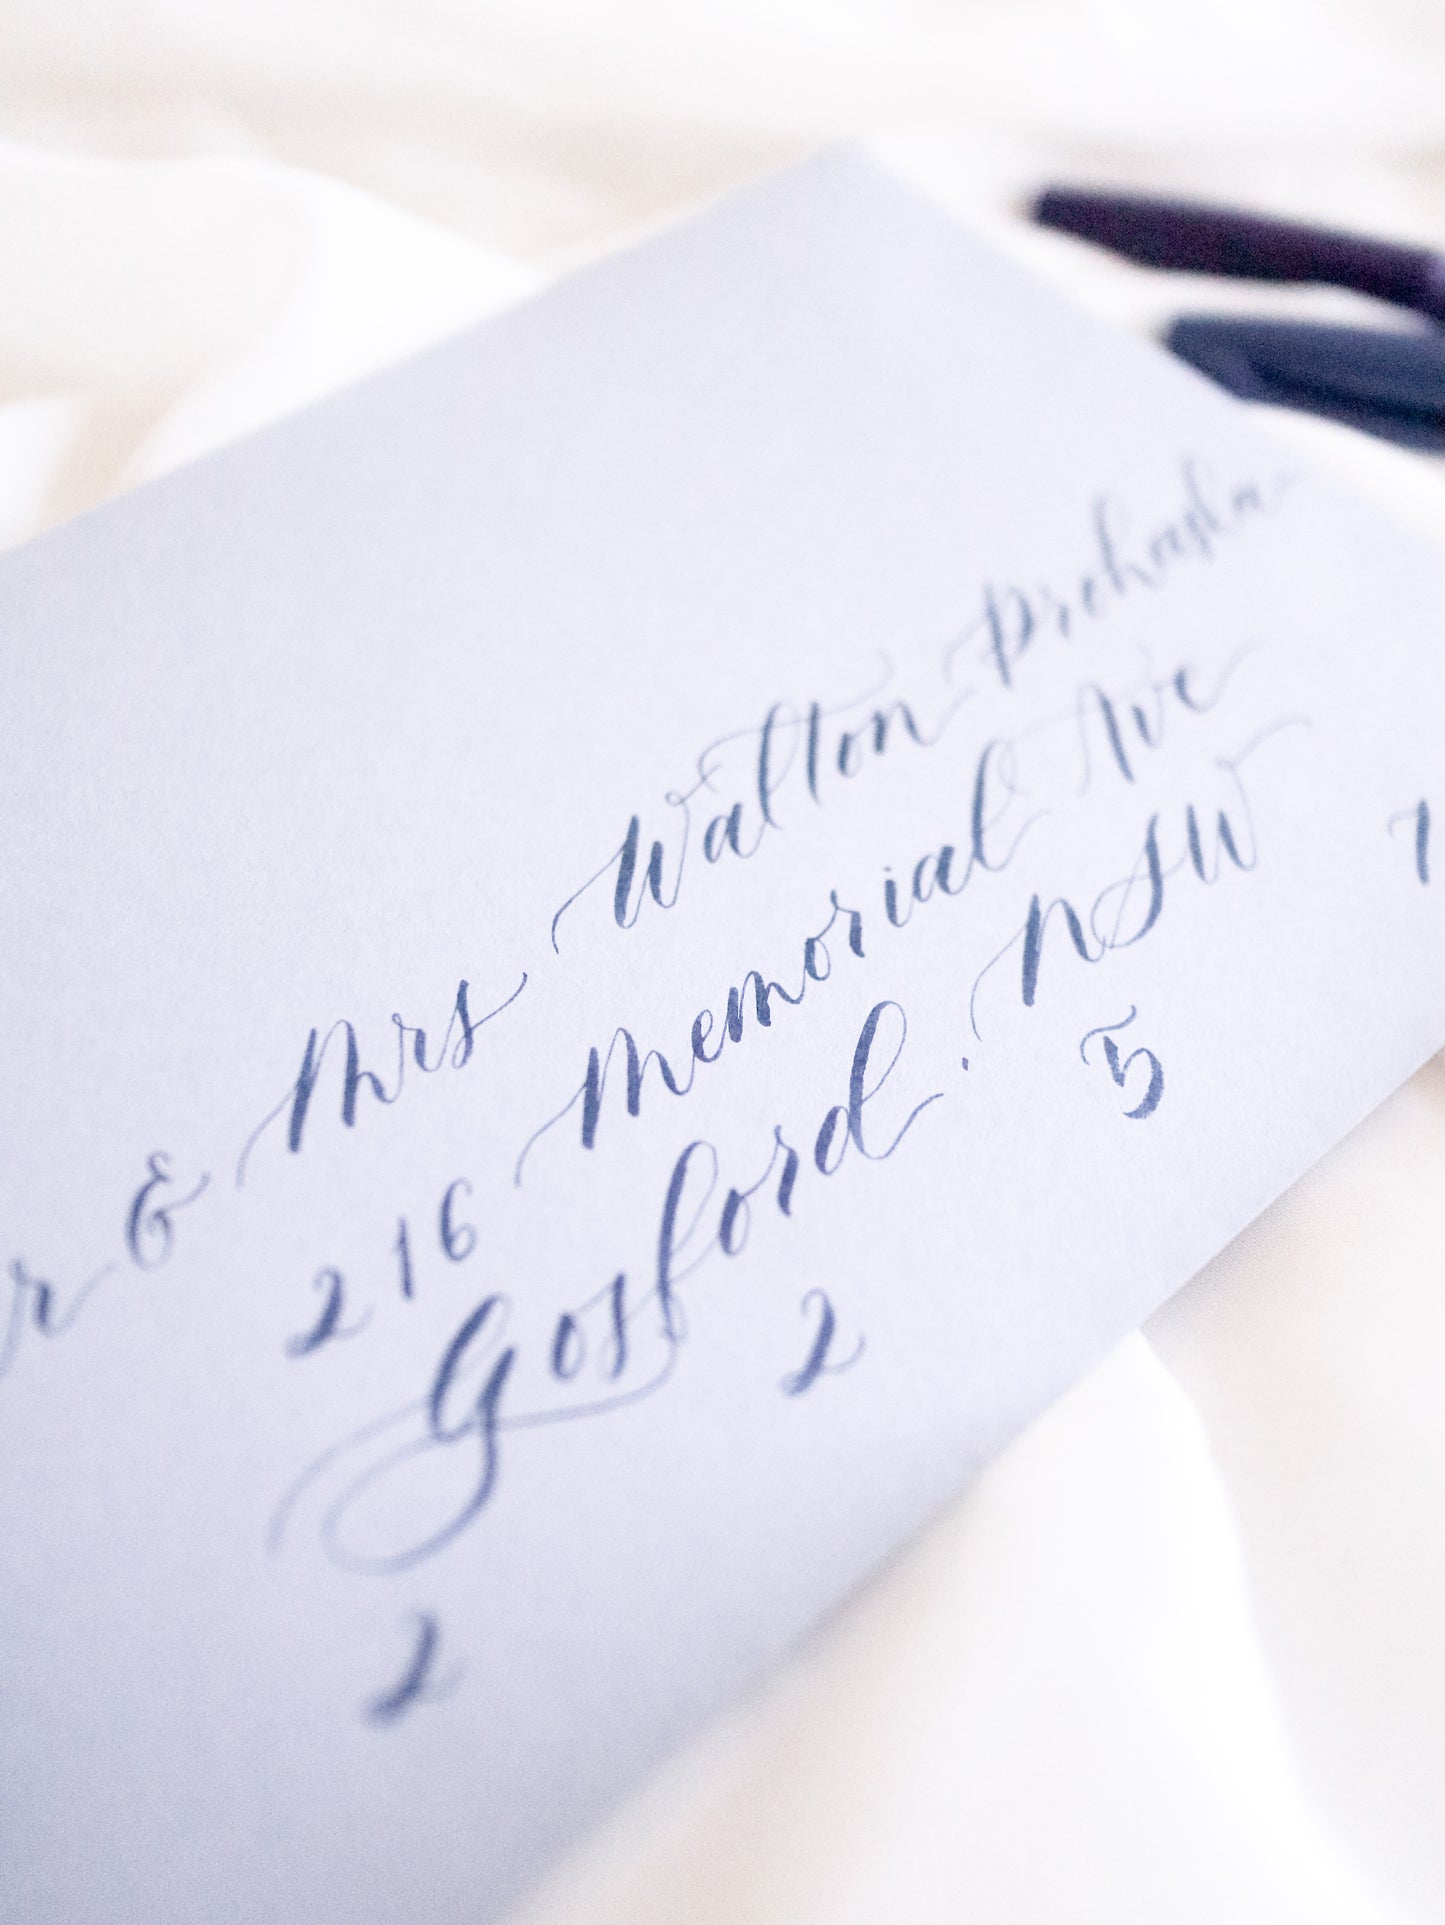 r & Mrs Walton Prohaska
216 Memorial Ave
Gosford. NSW
2 2 5 1